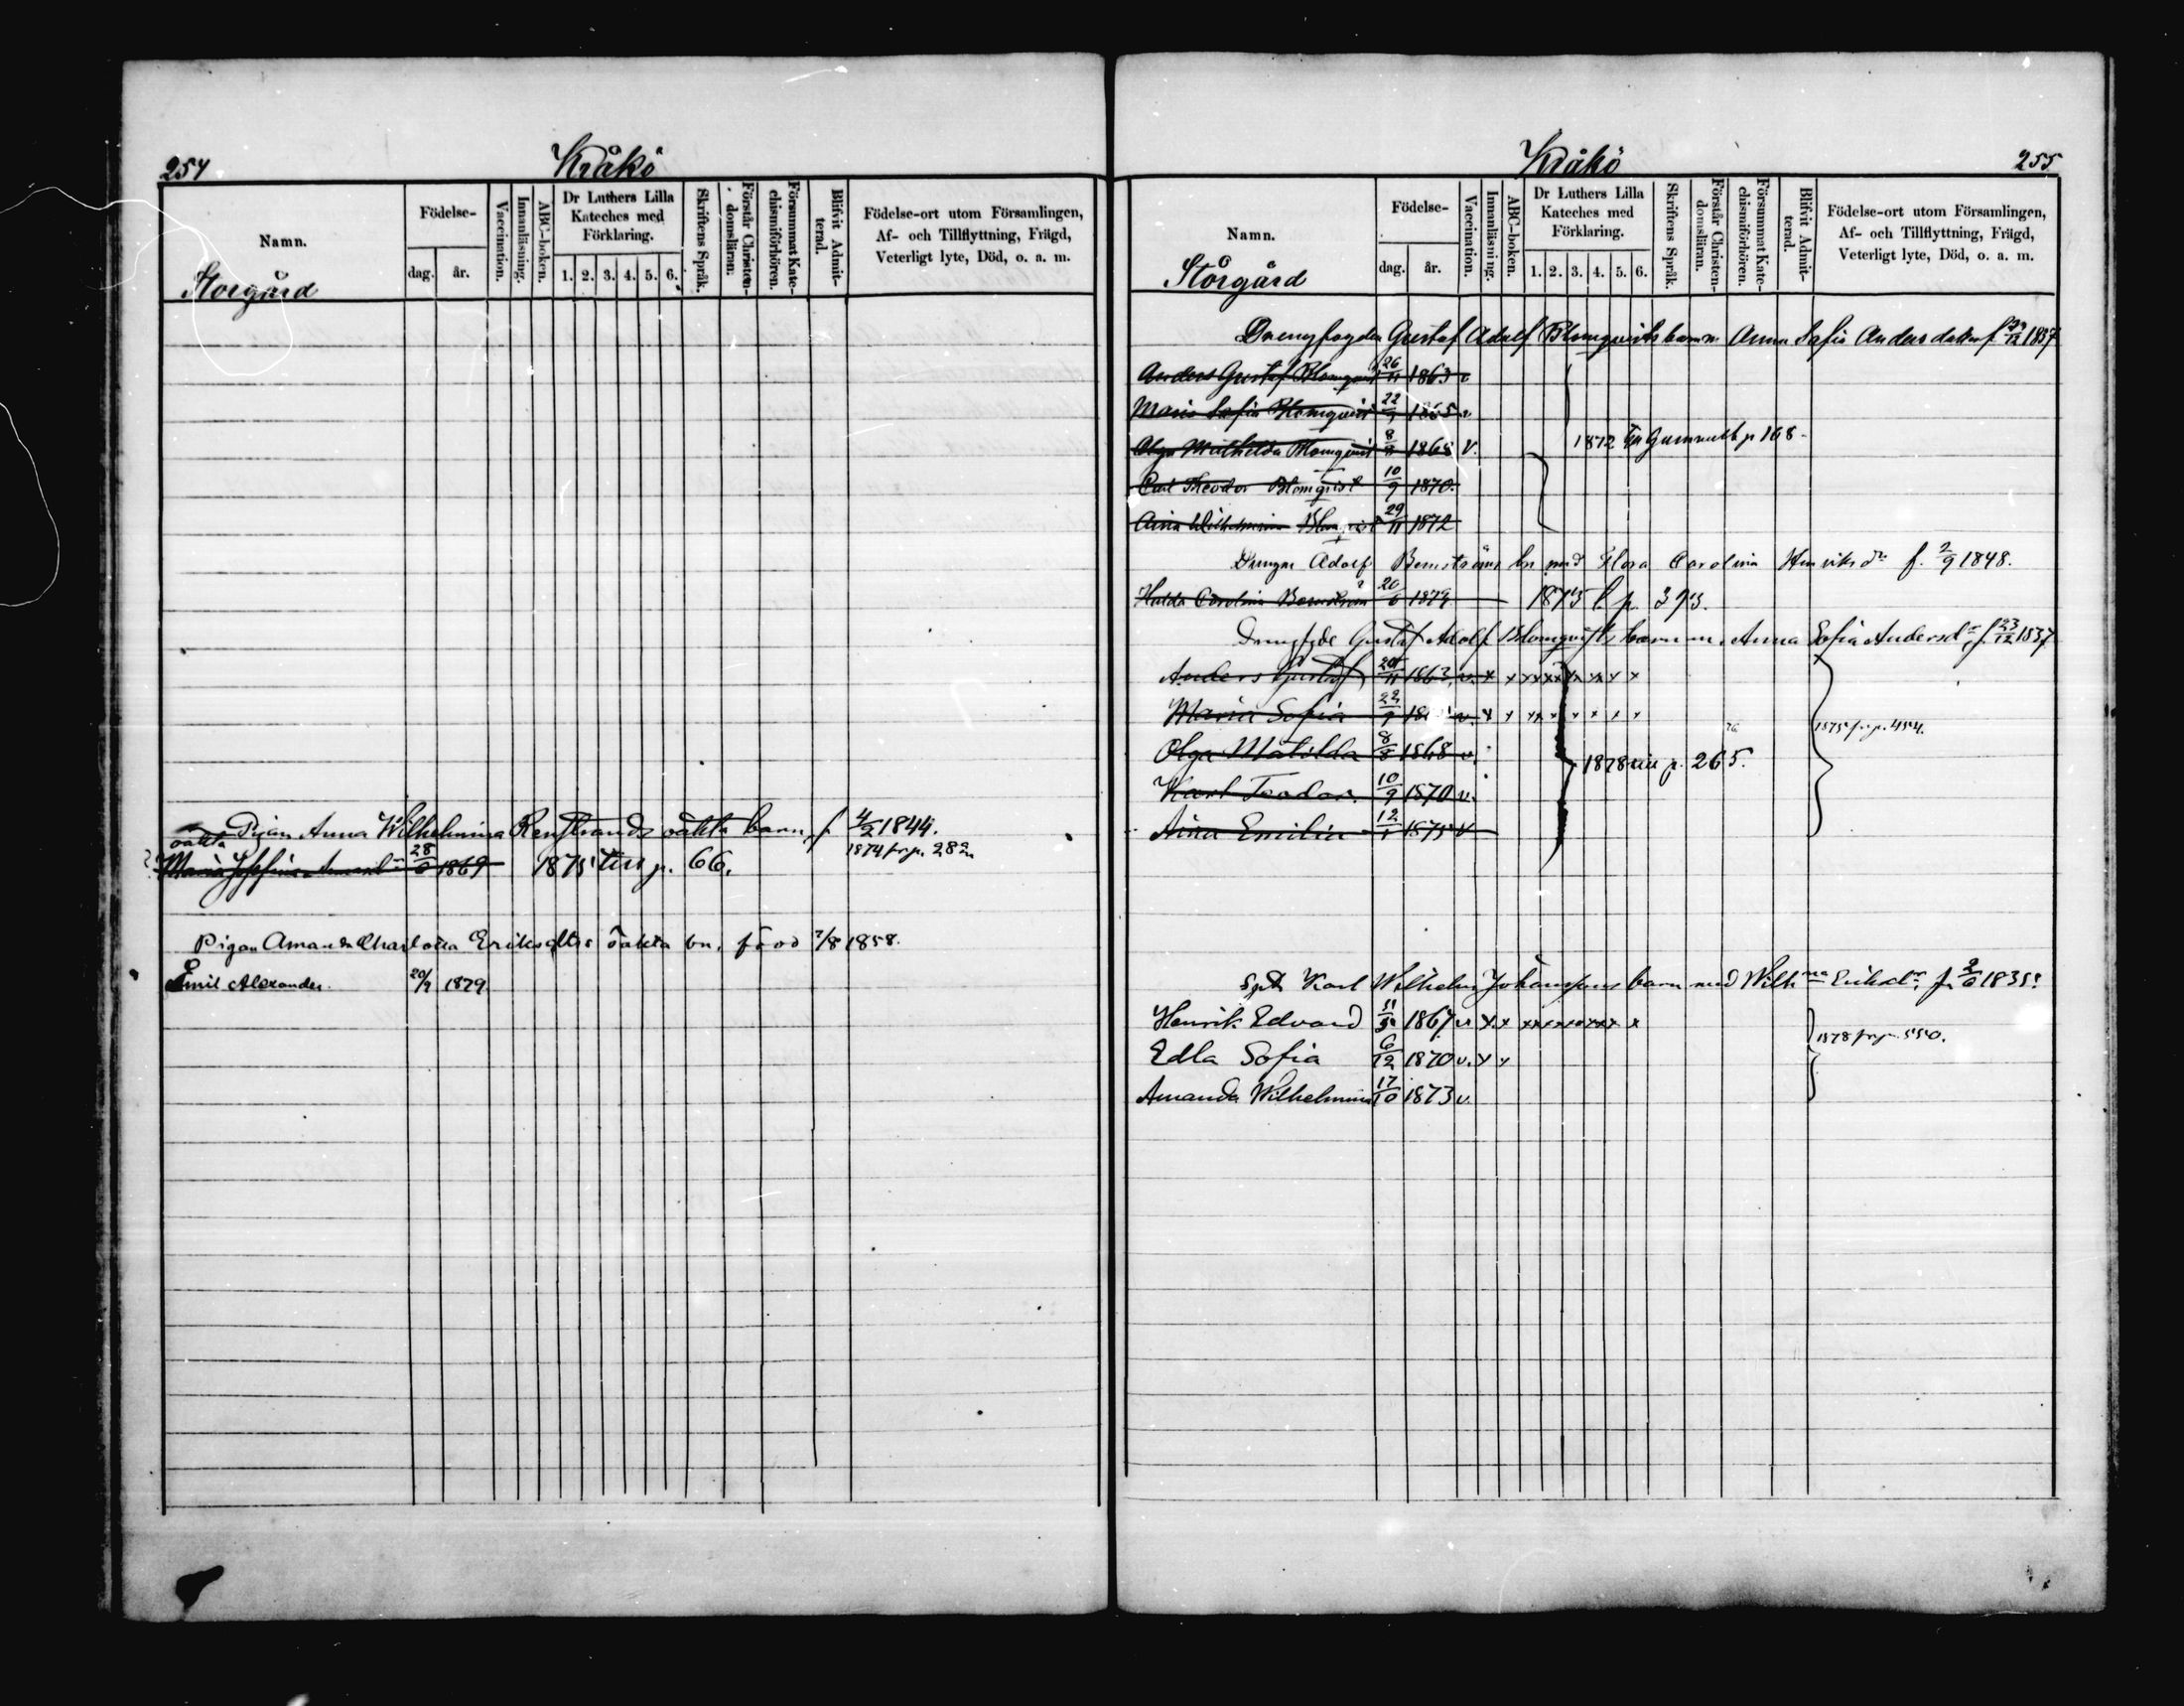 254
Kråkö
Namn.
Födelse-
dag.
år.
Vaccination.
Innanläsning.
ABC-boken.
Dr Luthers Lilla
Kateches med
Förklaring.
1. 2. 3. 4. 5. 6.
Skriftens Språk.
Förstår Christen-
domsläran.
Försummat Kate-
chismiförhören.
Blifvit Admit-
terad.
Födelse-ort utom Församlingen,
Af- och Tillflyttning, Frägd,
Veterligt lyte, Död, o. a. m.
Storgård
Pigan Anna Wilhelmina Renstrands oäkta barn f 4/2 1844.
oäkta
1874 fr. p. 282
Maria Josefina 28/6 1869 1875 till p. 66.
Pigan Amanda Charlotta Eriksdtrs oäkta bn. född 7/8 1858.
Emil Alexander. 20/9 1879
Kråkö
255
Namn.
Födelse-
dag.
år.
Vaccination.
Innanläsning.
ABC-boken.
Dr Luthers Lilla
Kateches med
Förklaring.
1. 2. 3. 4. 5. 6.
Skriftens Språk.
Förstår Christen-
domsläran.
Försummat Kate-
chismiförhören.
Blifvit Admit-
terad.
Födelse-ort utom Församlingen,
Af- och Tillflyttning, Frägd,
Veterligt lyte, Död, o. a. m.
Storgård
Drengfogden Gustaf Adolf Blomqvists barn m. Anna Sofia Andersdotter f 23/12 1837
Anders Gustaf Blomqvist 26/11 1863 v
Maria Sofia Blomqvist 22/9 1865 v
Olga Mathilda Blomqvist 8/8 1868 v.
1872 till p 168
Carl Theodor Blomqvist 10/9 1870.
Aina Wilhelmina 29/11 1872
Drengen Adolf bn med Flora Carolina Henriksdr f. 2/9 1848.
Hulda Carolina 20/6 1874 1875 t. p. 373.
Drengfgde Gustaf Adolf Blomqvists barn m. Anna Sofia Andersdr, f. 23/12 1837
Anders Gustaf 1863 v. x x x x x x x x x x
Maria Sofia 22/9 v. x x x x x x x x x
1875 fr. p. 454.
Olga Matilda 8/8 1868 v.
1878 till p. 265.
Karl Teodor. 10/9 1870 v.
Aina Emilia 12/1 1875 v
Karl Wilhelm Johanssons barn med Wilhma Eriksdr, f. 2/6 1835
Henrik Edvard 1867 v x x x x x x x x x x
1878 fr p. 550.
Edla Sofia 6/12 1870 v. x x
Amanda Wilhelmina 17/10 1873 v.